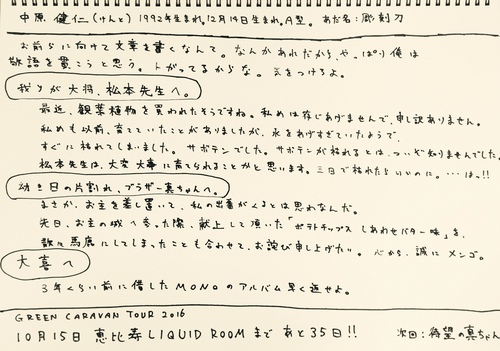 中原 健仁(けんと) 1992年生まれ。12月14日生まれ。A型。 あだ名:彫刻刀
お前らに向けて文章を書くなんて。なんかあれだから、や、ぱり俺は
敬語を貫こうと思う。トがってるからな。気をつけろよ。
我らが大将、松本先生へ。
最近、観葉植物を買われたそうですね。私めは存じあげませんで、申し訳ありません。
私めも以前、育てていたことがありましたが、水をあげすぎていたようで、
すぐに枯れてしまいました。サボテンでした。サボテンが枯れるとは、ついぞ知りませんでした。
松本先生は、大変 大事に育てられることかと思います。三日で枯れたらいいのに。…は、!!
幼き日の片割れ、ブラザー真ちゃんへ。
まさか、お主を差し置いて、私の出番がくるとは思わなんだ。
先日、お主の城へ参った際、献上して頂いた「ポテトチップス しあわせバター味」を、
散々馬鹿にしてしまったことも合わせて、お詫び申し上げたい。心から、誠にメンゴ。
大喜へ
3年くらい前に借したMONOのアルバム早く返せよ。
GREEN CARAVAN TOUR 2016
10月15日 恵比寿LIQUID ROOMまで あと35日!! 次回:待望の真ちゃん